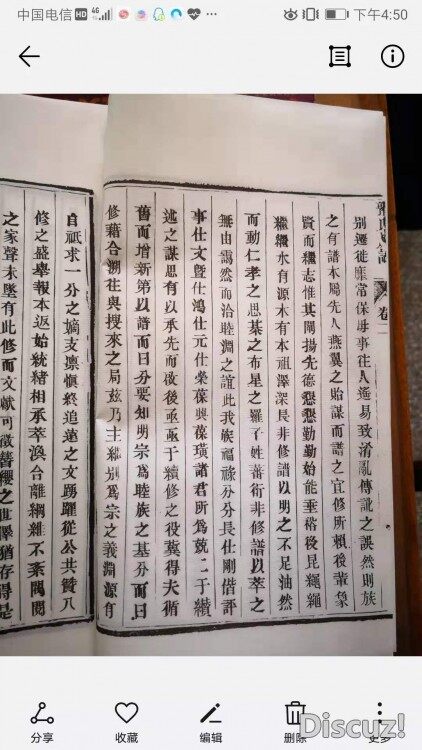 中国电信 HD 4G 下午4:50
卷
別遷徙靡常保毋事往人逸易致淆亂傳訛之誤然則族
之有譜本先人燕翼之貽謀而譜之宜修所賴後輩象
賢而繼志惟其闡揚先德懇懇勤勤始能垂裕後昆繩繩
繼繼水有源木有本祖澤深長非修譜以明之不足油然
而動仁孝之思棊之布星之羅子姓蕃衍非修譜以萃之
無由藹然而洽睦淵之誼此我族福祿分分長仕剛偕評
事仕文暨仕鴻仕元仕榮葆輿葆璜諸君所為兢二于纘
述之謀思有以承先而啟後亟亟于續修之役冀得夫循
舊而增新第以譜而曰分要如明宗為睦族之基分而曰
修藉合溯往與授來之局茲乃主鄉別為宗之義淵源有
自祇求一分之嫡支凜慎終追遠之文踴躍從公共贊八
修之盛舉報本返始統緒相承萃渙合離綱維不紊閥閱
之家聲未墜有此修而文獻可徵簪纓之世澤猶存得是
分享 收藏 编辑 删除 更多
Discuz!